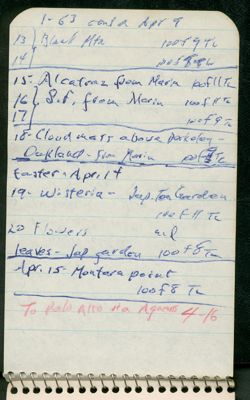 1-63 cont'd Apr 9
13) Black Mtn 100 f 9 Tu
14) 100 f Tu
15- Alcatraz from Marin f 11 Tu
16} S.F. from Marin 100 f 11 Tu
17} 100 f 9 Tu
18- Cloud mass above Berkeley-
Oakland- from Marin Tu
Easter- April 14
19- Wisteria- Jap. Tea Garden
100 f 11 Tu
20 Flowers
leaves- Jap garden 100 f 8 Tu
Apr. 15- Montara point
100 f 8 Tu
To Palo Alto via Agnes 4-16